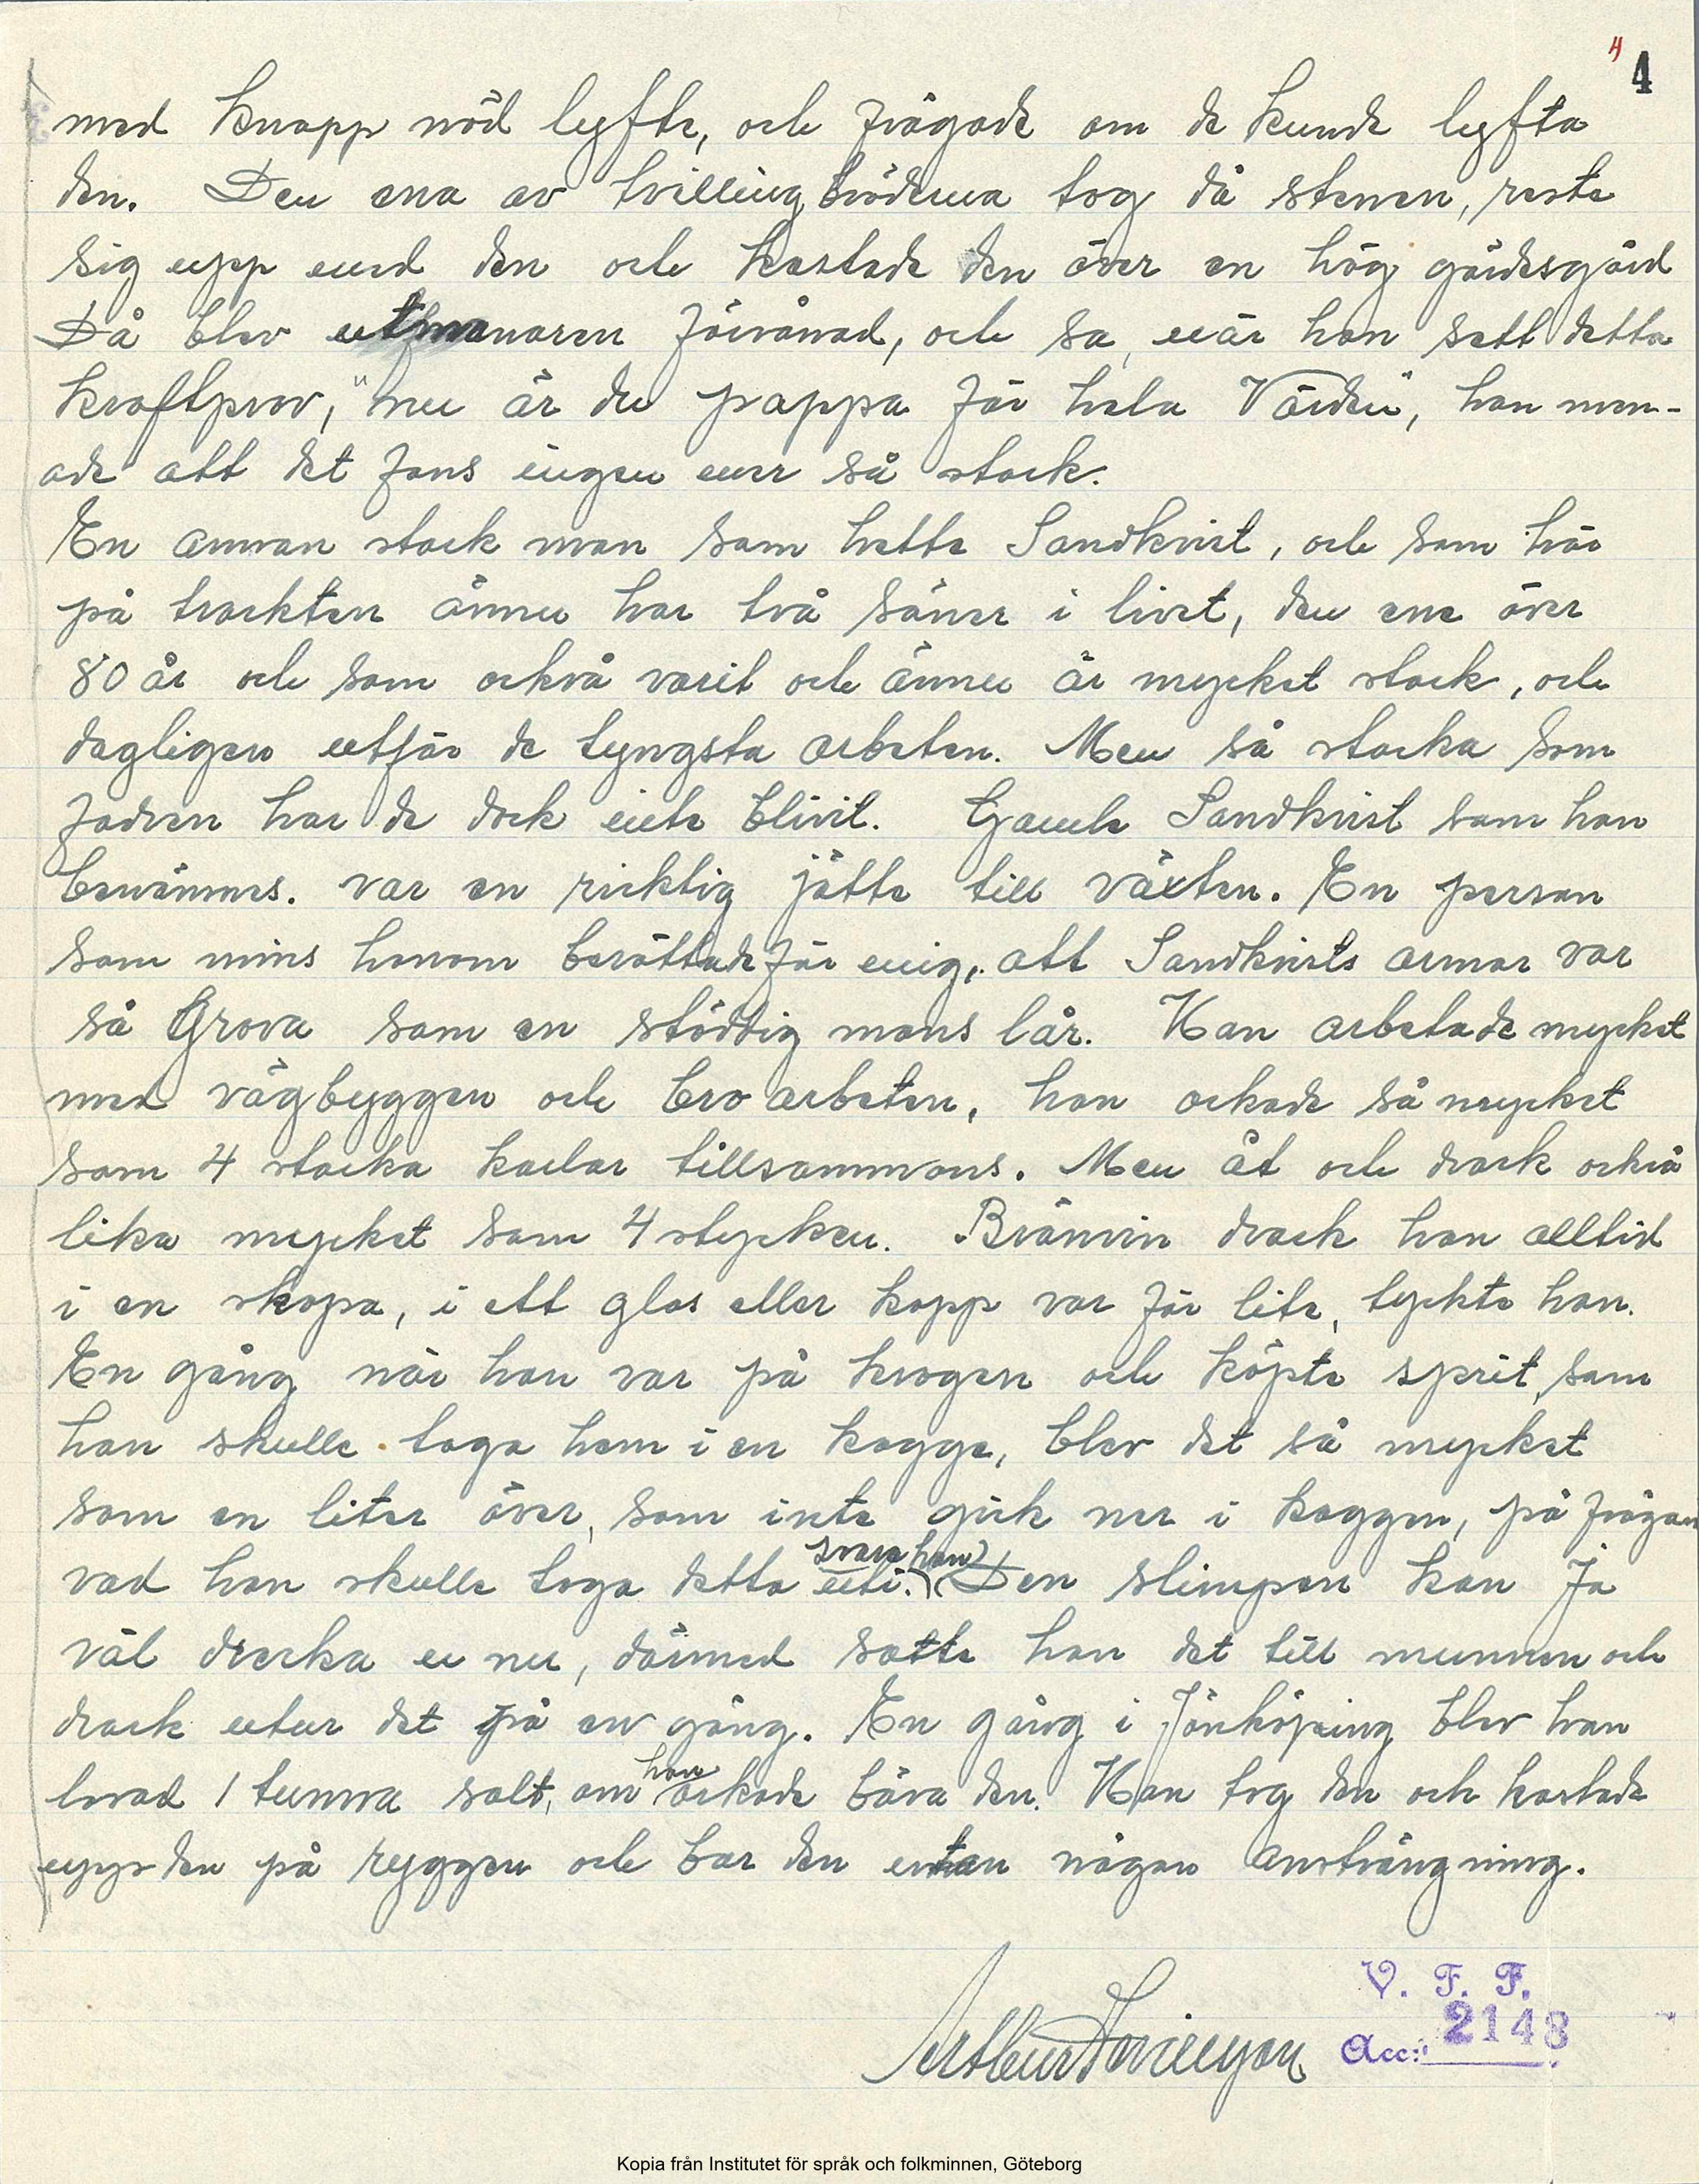 4 4
med knapp nöd lyfte, och frågade om de kunde lyfta
den. Den ena av tvillingbröderna tog då stenen, reste
sig upp med den och kastade den över en hög gärdesgård
Då blev utmanaren förvånad, och sa, när han sett detta
kraftprov, "nu är du pappa för hela Värden", han men-
ade att det fans ingen mer så stark.
En annan stark man som hette Sandkvist, och som här
på trackten ännu har två söner i livet, den ene över
80 år och som också varit och ännu är mycket stark, och
dagligen utför de tyngsta arbeten. Men så starka som
fadren har de dock inte blivit. Gamle Sandkvist som han
benämnes. var en ricktig jätte till växten. En person
som mins honom berättade för mig, att Sandkvists armar var
så Grova som en stöddig mans lår. Han arbetade mycket
med vägbyggen och bro arbeten, han orkade så mycket
som 4 starka karlar tillsammans. Men åt och drack också
lika mycket som 4 stycken. Bränvin drack han alltid
i en skopa, i ett glas eller kopp var för lite, tyckte han.
En gång när han var på krogen och köpte sprit, som
han skulle taga hem i en kagge, blev det så mycket
som en liter över, som inte gick ner i kaggen, på frågan
vad han skulle taga detta uti. (svara han) Den slimpen kan Ja
väl dricka u nu, därmed satte han det till munnen och
drack utur det på en gång. En gång i Jönköping blev han
lovad 1 tunna salt, om han orkade bära den. Han tog den och kastade
upp den på ryggen och bar den utan någon ansträngning.
V. F. F.
Acc: 2148
Kopia från Institutet för språk och folkminnen, Göteborg